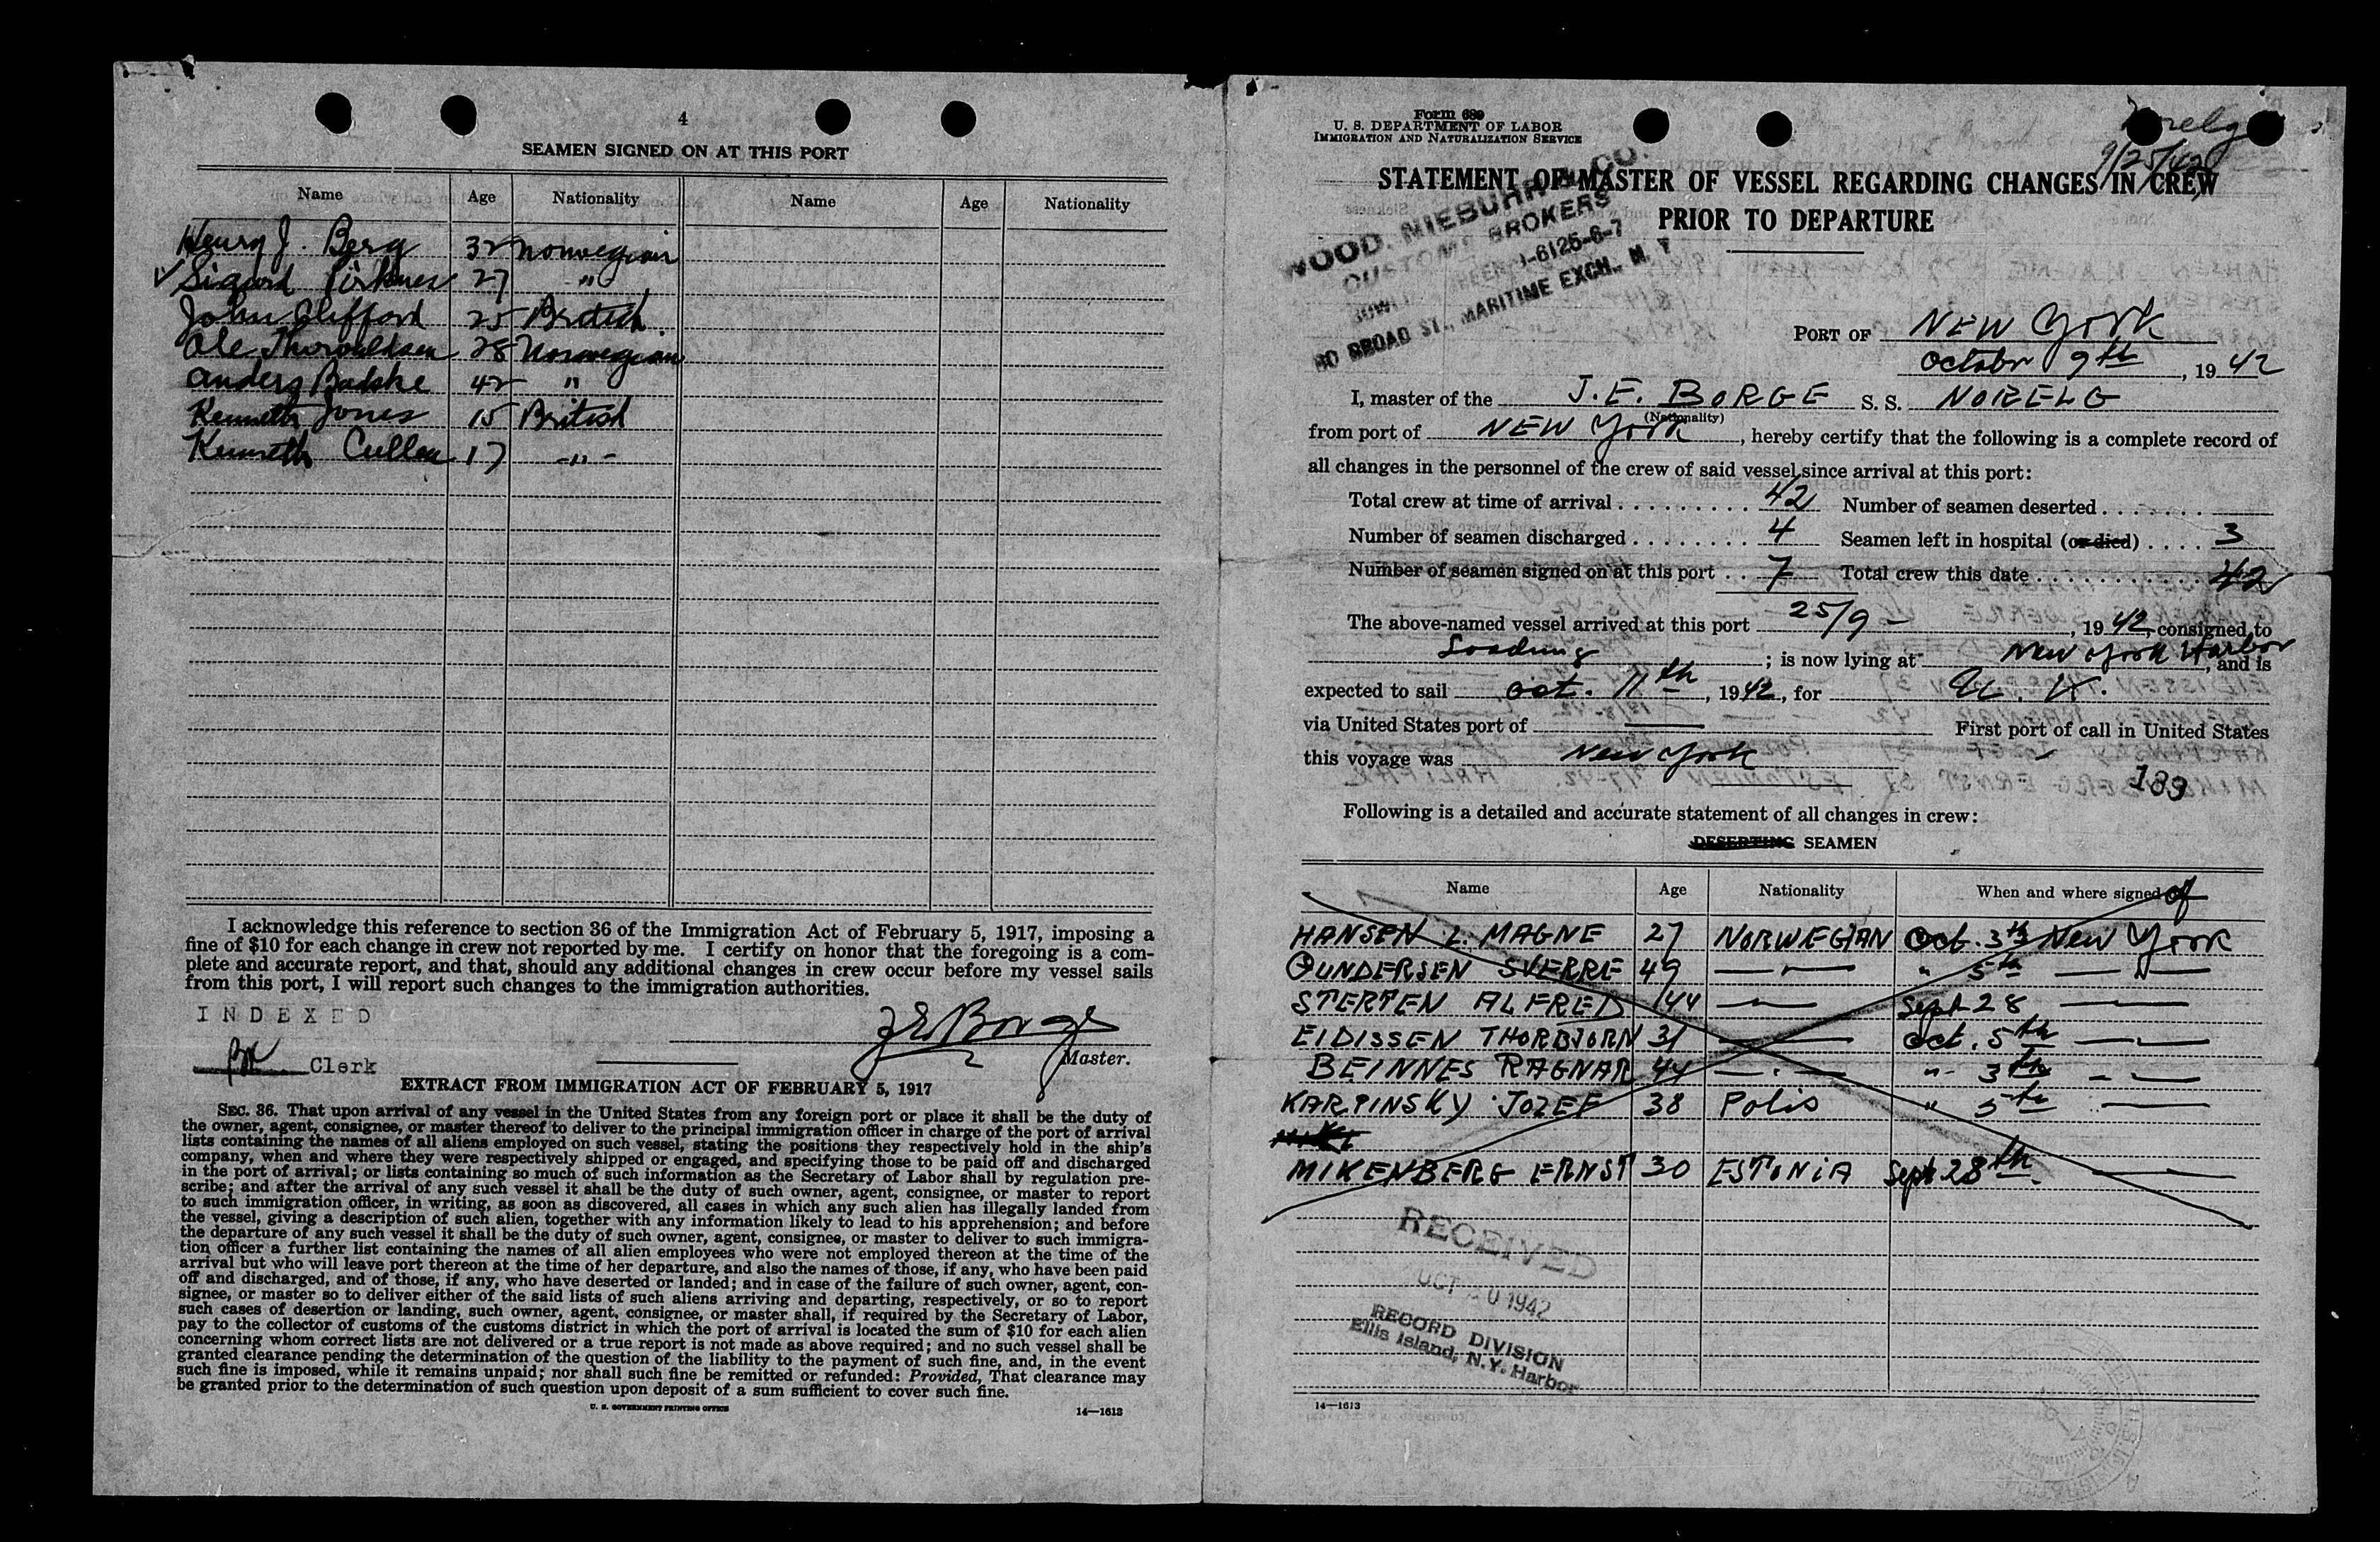 4
SEAMEN SIGNED ON AT THIS PORT
Name Age Nationality Name Age Nationality
Henry J. Berg 32 Norwegian
✓ Sigurd 27 "
John Clifford 25 British
Ole Thorvaldsen 28 Norwegian
Anders Bakke 42 "
Kenneth Jones 15 British
Kenneth Cullen 17 -"-
I acknowledge this reference to section 36 of the Immigration Act of February 5, 1917, imposing a
fine of $10 for each change in crew not reported by me. I certify on honor that the foregoing is a com-
plete and accurate report, and that, should any additional changes in crew occur before my vessel sails
from this port, I will report such changes to the immigration authorities.
INDEXED
J E Borge
Clerk
Master.
EXTRACT FROM IMMIGRATION ACT OF FEBRUARY 5, 1917
SEC. 36. That upon arrival of any vessel in the United States from any foreign port or place it shall be the duty of
the owner, agent, consignee, or master thereof to deliver to the principal immigration officer in charge of the port of arrival
lists containing the names of all aliens employed on such vessel, stating the positions they respectively hold in the ship's
company, when and where they were respectively shipped or engaged, and specifying those to be paid off and discharged
in the port of arrival; or lists containing so much of such information as the Secretary of Labor shall by regulation pre-
scribe; and after the arrival of any such vessel it shall be the duty of such owner, agent, consignee, or master to report
to such immigration officer, in writing, as soon as discovered, all cases in which any such alien has illegally landed from
the vessel, giving a description of such alien, together with any information likely to lead to his apprehension; and before
the departure of any such vessel it shall be the duty of such owner, agent, consignee, or master to deliver to such immigra-
tion officer a further list containing the names of all alien employees who were not employed thereon at the time of the
arrival but who will leave port thereon at the time of her departure, and also the names of those, if any, who have been paid
off and discharged, and of those, if any, who have deserted or landed; and in case of the failure of such owner, agent, con-
signee, or master so to deliver either of the said lists of such aliens arriving and departing, respectively, or so to report
such cases of desertion or landing, such owner, agent, consignee, or master shall, if required by the Secretary of Labor,
pay to the collector of customs of the customs district in which the port of arrival is located the sum of $10 for each alien
concerning whom correct lists are not delivered or a true report is not made as above required; and no such vessel shall be
granted clearance pending the determination of the question of the liability to the payment of such fine, and, in the event
such fine is imposed, while it remains unpaid; nor shall such fine be remitted or refunded: Provided, That clearance may
be granted prior to the determination of such question upon deposit of a sum sufficient to cover such fine.
U. S. GOVERNMENT PRINTING OFFICE 14—1613
Form 689
U. S. DEPARTMENT OF LABOR
IMMIGRATION AND NATURALIZATION SERVICE
Norelg
9/25/42
STATEMENT OF MASTER OF VESSEL REGARDING CHANGES IN CREW
PRIOR TO DEPARTURE
WOOD, NIEBUHR & CO.
CUSTOMS BROKERS
-6125-6-7
80 BROAD ST., MARITIME EXCH., N. Y.
PORT OF NEW York
October 9th, 1942
I, master of the J.E. BORGE S. S. NORELG
(Nationality)
from port of NEW York, hereby certify that the following is a complete record of
all changes in the personnel of the crew of said vessel since arrival at this port:
Total crew at time of arrival 42 Number of seamen deserted
Number of seamen discharged 4 Seamen left in hospital (or died) 3
Number of seamen signed on at this port 7 Total crew this date 42
The above-named vessel arrived at this port 25/9 -, 1942, consigned to
Loading; is now lying at New York Harbor, and is
expected to sail Oct. 11th, 1942, for U. K.
via United States port of — First port of call in United States
this voyage was New York
189
Following is a detailed and accurate statement of all changes in crew:
DESERTING SEAMEN
Name Age Nationality When and where signed of
HANSEN L. MAGNE 27 NORWEGIAN Oct. 3th New York
GUNDERSEN SVERRE 49 —"— " 5th —"—
STERTEN ALFRED 44 —"— Sept 28 —"—
EIDISSEN THORBJORN 31 —"— Oct. 5th —"—
BEINNES RAGNAR 44 —"— " 3th —"—
KARPINSKY JOZEF 38 Polis " 5th —
MIKENBERG ERNST 30 ESTONIA Sept 28th —
RECEIVED
OCT 0 1942
RECORD DIVISION
Ellis Island, N.Y. Harbor
14—1613